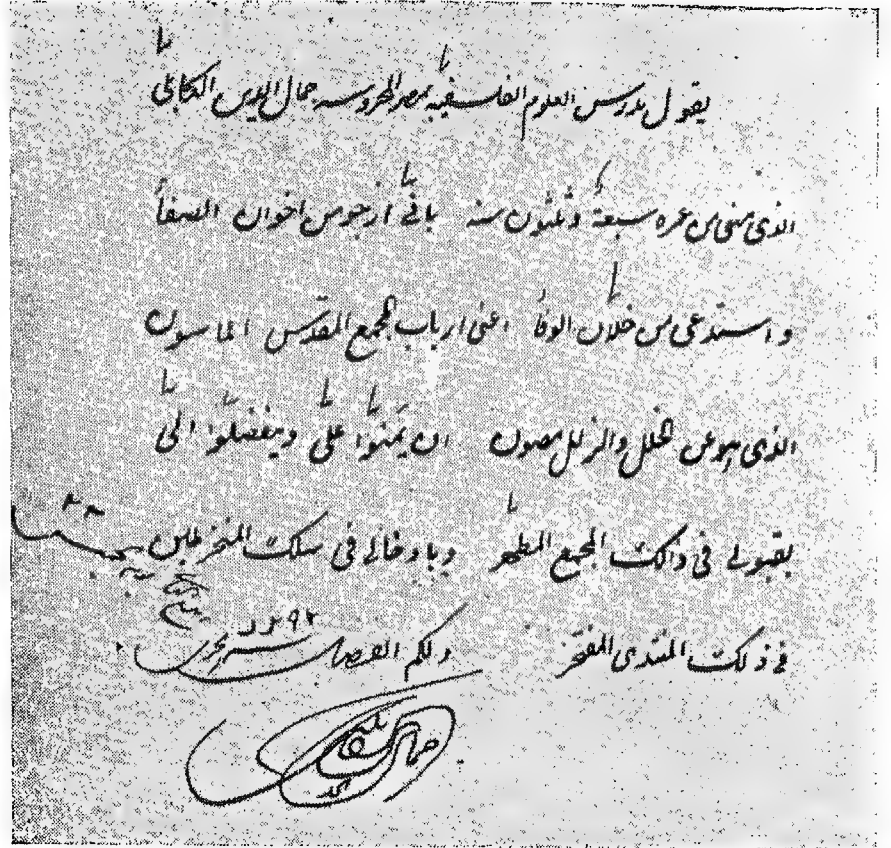 يقول مدرس العلوم الفلسفية بمصر المحروسة جمال الدين الكابلي
الذى مضى من عمره سبعة وثلثون سنة بانى ارجو من اخوان الصفا
واستدعى من خلان الوفا اعنى ارباب المجمع المقدس الماسون
الذى هو عن الخلل والزلل مصون ان يمنوا على ويتفضلوا الى
بقبولى فى ذلك المجمع المطهر وبادخالى فى سلك المنخرطين
فى ذلك المنتدى المفتخر ولكم الفضل
١٢٩٢
جمال الدين